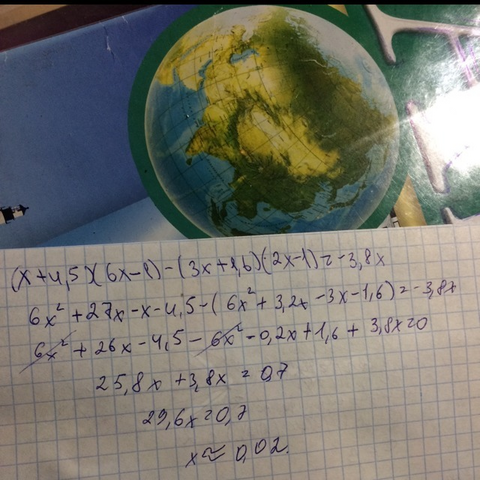 (x+4,5)(6x-1)-(3x+1,6)(2x-1)=-3,8x
6x²+27x-x-4,5-(6x²+3,2x-3x-1,6)=-3,8x
6x²+26x-4,5-6x²-0,2x+1,6+3,8x=0
25,8x+3,8x=0,7
29,6x=0,7
x≈0,02.